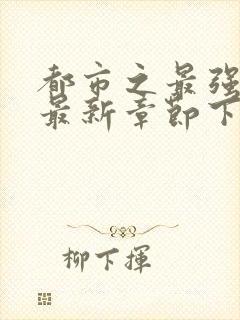 都市之最强
最新章節下
柳下揮